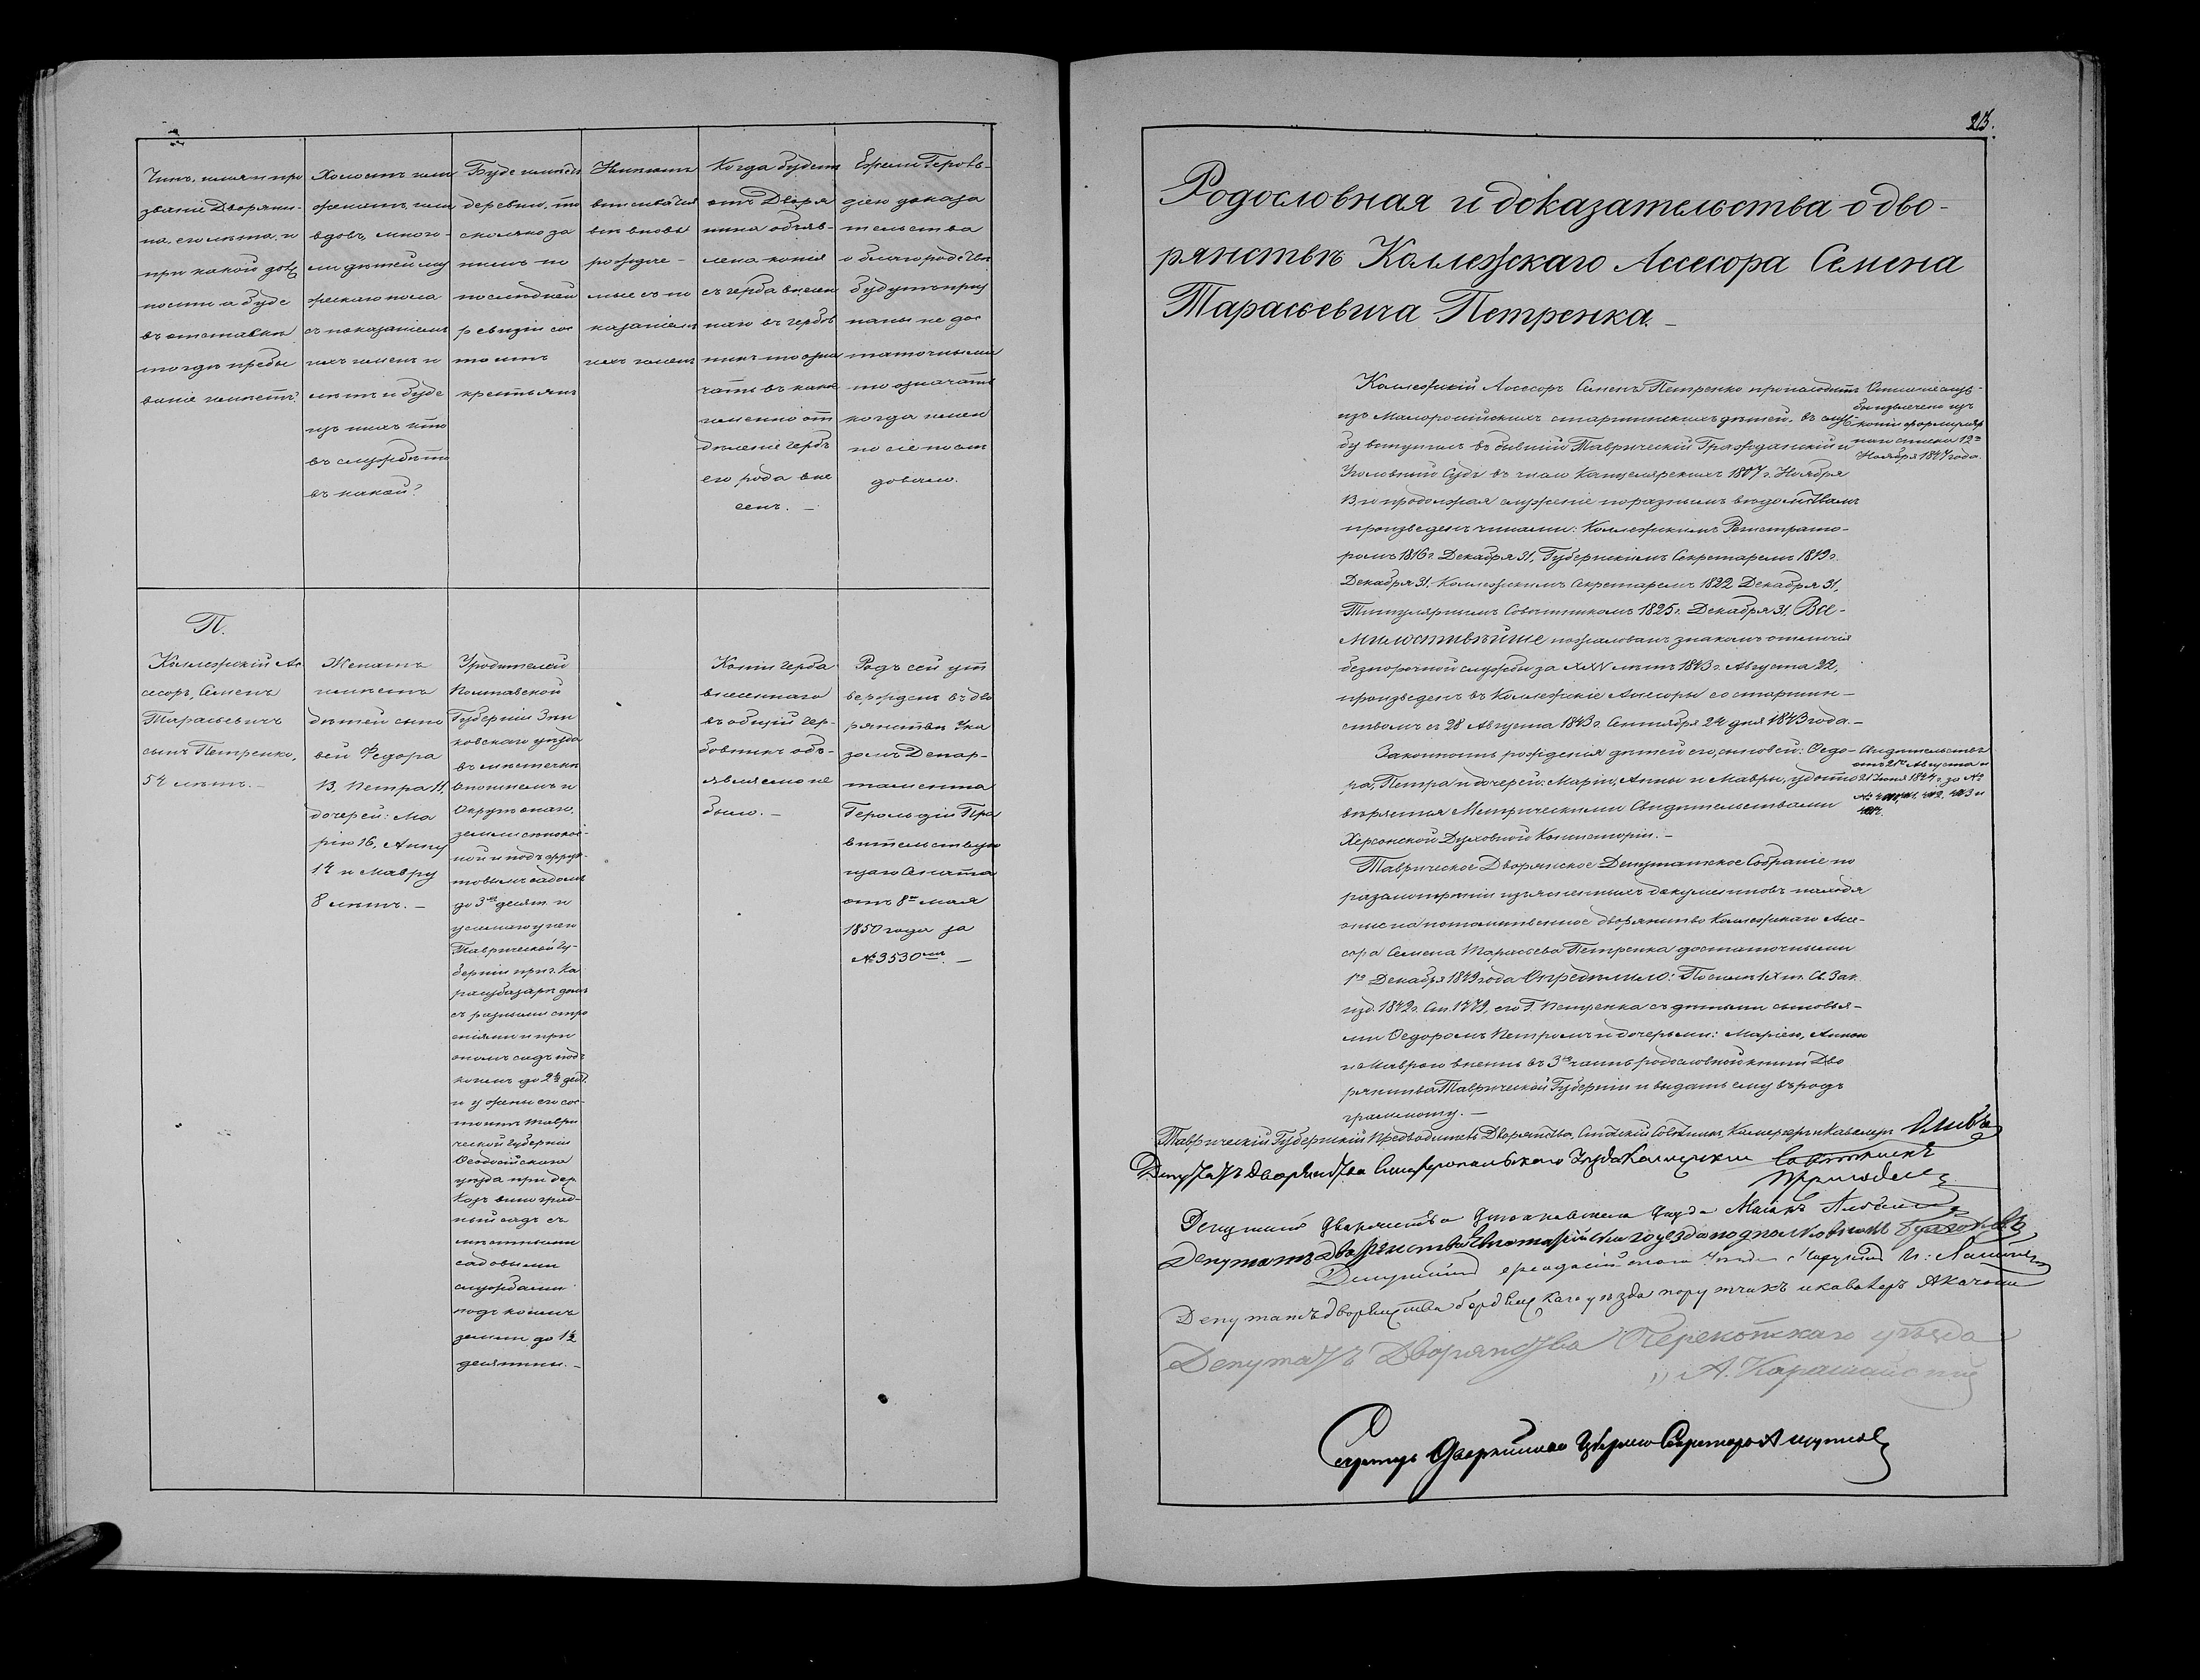 Чинъ, имя и про
званіе Дворяни-
на, его лѣта, и
при какой долж
ности а буде
въ отставкѣ
то гдѣ пребы
ваніе имѣетъ?
Холостъ или
женатъ, или
вдовъ, много-
ли дѣтей му
жескаго пола
съ показаніемъ
ихъ именъ и
лѣтъ и буде
изъ нихъ кто
въ службѣ то
въ какой?
Буде имѣетъ
деревни, то
сколько за
нимъ по
послѣдней
ревизіи сос
тоитъ
крестьянъ
вписываются
вновь
рождае-
мые съ по
казаніемъ
ихъ именъ
Когда будетъ
отъ Дворя
нина объяв-
лена копія
съ герба внесен
наго въ гербов
никъ то озна
чать въ какое
именно от
дѣленіе гербъ
его рода вне
сенъ. —
Ежели Героль-
діею доказа
тельства
о благородствѣ
будутъ приз
наны не дос
таточными
то означать
когда имен
но сіе послѣ
довало.
П.
Коллежскій Ас
сесоръ, Семенъ
Тарасьевичъ
сынъ Петренко,
54 лѣтъ. —
Женатъ
имѣетъ
дѣтей сыно
вей Федора
13, Петра 11,
дочерей: Ма
рію 16, Анну
14 и Мавру
8 лѣтъ. —
У родителей
Полтавской
Губерніи Зѣнь
ковскаго уѣзда
въ мѣстечкѣ
Опошнемъ и
Округѣ онаго,
земли сѣнокос-
ной и подъ фрук-
товымъ садомъ
до 3хъ десят. и
у самаго у него
Таврической Гу-
берніи при г. Ка
расубазарѣ домъ
съ разными стро
еніями и при
ономъ садъ подъ
коимъ до 2½ дес.
и у жены его сос-
тоитъ Таври
ческой Губерніи
Ѳеодосійскаго
уѣзда при дер.
Козъ виноград-
ный садъ съ
садовыми
службами
подъ коимъ
земли до 1½
десятины. —
Копіи герба
внесеннаго
въ общій Гер-
бовникъ объ-
являемо не
было. —
Родъ сей ут
вержденъ въ дво
рянствѣ Ука
зомъ Депар-
тамента
Герольдіи Пра
вительствую
щаго Сената
отъ 8го мая
1850 года за
№ 3530мъ. —
Родословная и доказательства о дво-
рянствѣ Коллежскаго Ассесора Семена
Тарасьевича Петренка. —
Коллежскій Ассесоръ Семенъ Петренко происходитъ
изъ Малороссійскихъ старшинскихъ дѣтей. Въ служ
бу вступилъ въ бывшій Таврическій Гражданскій и
Уголовный Судъ въ число Канцелярскихъ 1807 г. Ноября
13, и продолжая служеніе по разнымъ вѣдомствамъ
произведенъ чинами: Коллежскимъ Регистрато-
ромъ 1816 г. Декабря 31, Губернскимъ Секретаремъ 1819 г.
Декабря 31. Коллежскимъ Секретаремъ 1822 Декабря 31,
Титулярнымъ Совѣтникомъ 1825 г. Декабря 31. Все-
милостивѣйше пожалованъ знакомъ отличія
безпорочной службы за XXV лѣтъ 1843 г. Августа 22,
произведенъ въ Коллежскіе Ассесоры со старшин-
ствомъ съ 28 Августа 1843 г. Сентября 24 дня 1843 года. —
Отличіе служ-
бы извлечено изъ
копіи формуляр
наго списка 12го
Ноября 1847 года.
Законность рожденія дѣтей его, сыновей: Ѳедо-
ра, Петра и дочерей: Маріи, Анны и Мавры, удосто
вѣряется Метрическими Свидѣтельствами
Херсонской Духовной Консисторіи. —
Свидѣтельства
Таврическое Дворянское Депутатское Собраніе по
разсмотрѣніи изъясненныхъ документовъ находя
оные на потомственное дворянство Коллежскаго Ассе-
сора Семена Тарасьева Петренка достаточными
1го Декабря 1849 года Опредѣлило: По силѣ IX т. Св. Зак.
изд. 1842 г. Ст. 1479, его Г. Петренка съ дѣтьми сыновья-
ми Ѳедоромъ Петромъ и дочерьми: Маріею, Анною
и Маврою внесть въ 3ю часть родословной книги Дво
рянства Таврической Губерніи и выдать ему въ родъ
грамоту. —
Таврическій Губернскій Предводитель Дворянства, Статскій Совѣтникъ, Камергеръ и Кавалеръ
Депутатъ Дворянства Симферопольскаго Уѣзда Коллежскій Совѣтникъ
Депутатъ Дворянства уѣзда
Депутатъ дворянства Евпаторійскаго уезда подполковникъ
Депутатъ Феодосійскаго
Депутатъ дворянства бердянскаго уезда порутчикъ и кавалеръ
Депутатъ Дворянства Перекопскаго уѣзда
Секретарь Дворянства Губернскій Секретарь